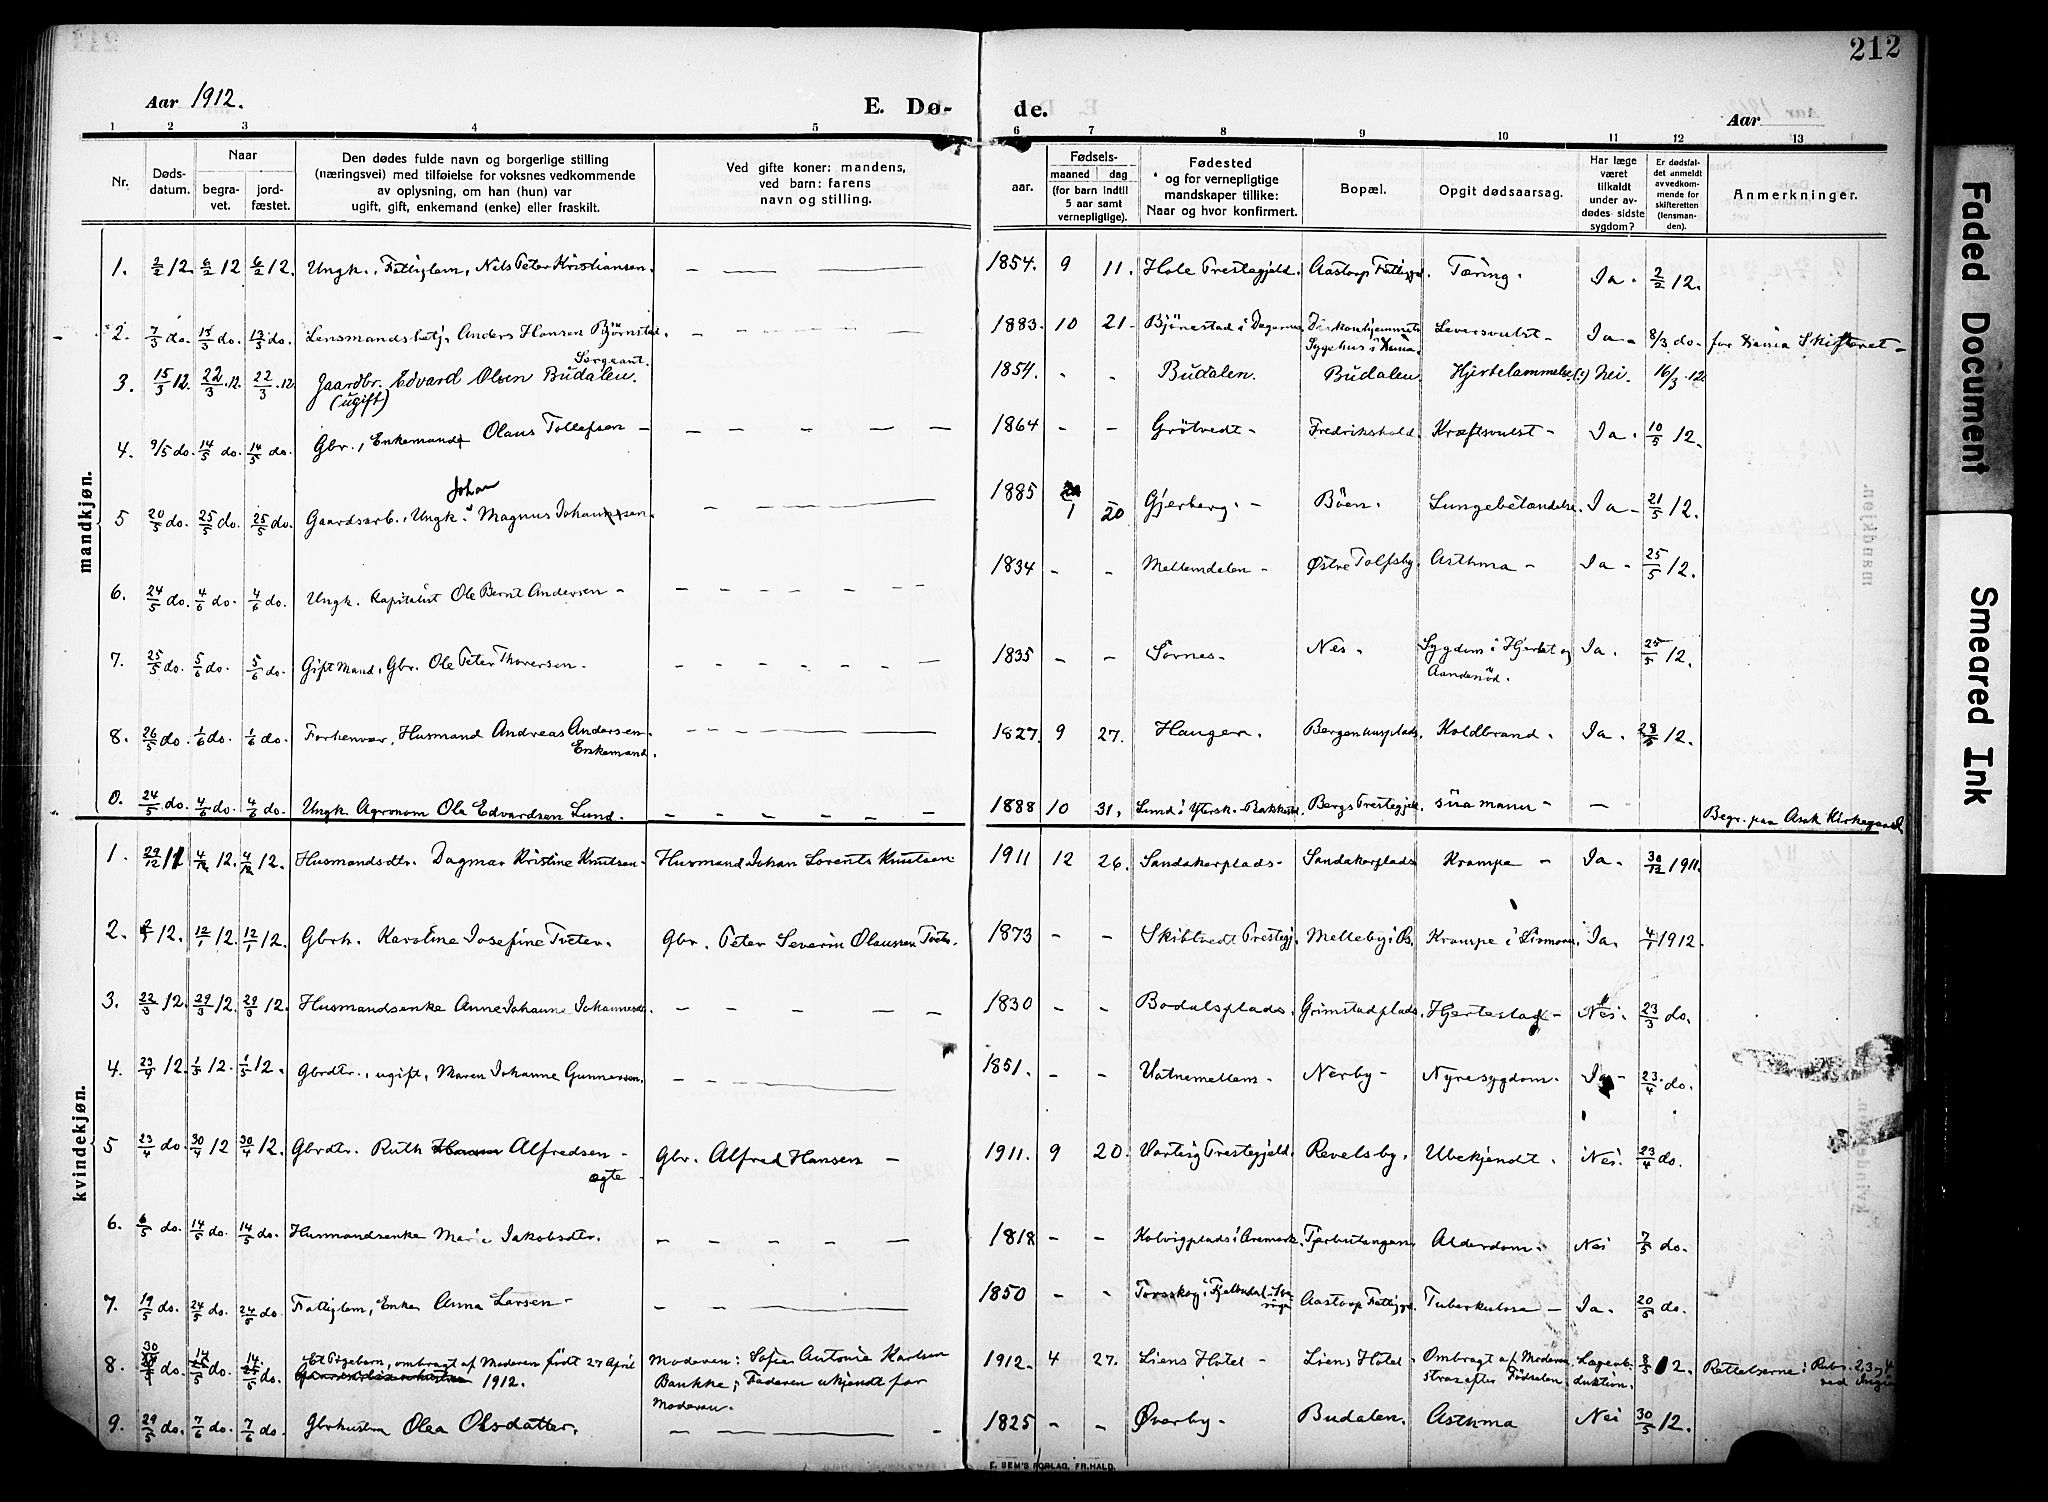 212
Aar 1912.
E. Dø-
de.
Aar
1 2 3 4 5 6 7 8 9 10 11 12 13
Nr.
Døds-
datum.
Naar
begra-
vet.
jord-
fæstet.
Den dødes fulde navn og borgerlige stilling
(næringsvei) med tilføielse for voksnes vedkommende
av oplysning, om han (hun) var
ugift, gift, enkemand (enke) eller fraskilt.
Ved gifte koner: mandens,
ved barn: farens
navn og stilling.
aar.
Fødsels-
maaned dag
(for barn indtil
5 aar samt
vernepligtige).
Fødested
og for vernepligtige
mandskaper tillike:
Naar og hvor konfirmert.
Bopæl.
Opgit dødsaarsag.
Har læge
været
tilkaldt
under av-
dødes sidste
sygdom?
Er dødsfal-
det anmeldt
av vedkom-
mende for
skifteretten
(lensman-
den).
Anmerkninger.
mandkjøn.
1. 2/2 12. 6/2 12 6/2 12. Ungk., Fattiglem, Nils Peter Kristiansen. 1854. 9 11. Hole Prestegjeld. Aastorp Fattiggd. Tæring. Ja. 2/2 12.
2. 7/3 do. 13/3 do. 13/3 do. Lensmandsbetj. Anders Hansen Bjørnstad. 1883. 10 21. Bjørnestad i Degernes Diakonhjemmets Leversvulst Ja 8/3 do. for Kania Skifteret
Sygehus i Kania.
Sergeant.
3. 15/3 12. 22/3 12 22/3 12 Gaardbr. Edvard Olsen Budalen. 1854. - - Budalen. Budalen. Hjertelammelse (?) Nei. 16/3 12
(ugift)
4. 9/5 do. 14/5 do. 14/5 do. Gbr., Enkemand Olaus Tollefsen 1864 - - Grötvedt Fredrikshald. Kræftsvulst Ja. 10/5 12.
Johan
5 20/5 do. 25/5 do. 25/5 do. Gaardsarb., Ungk. Magnus Johansen. 1885 1 20 Gjerberg. Böen. Lungebetændelse. Ja 21/5 12.
6. 24/5 do. 4/6 do. 4/6 do. Ungk. Kapitalist Ole Bernt Andersen 1834 - - Mellemdalen Østre Tolfsby. Asthma Ja 25/5 12.
7. 25/5 do. 5/6 do. 5/6 do. Gift Mand, Gbr. Ole Peter Thoresen. 1835 - - Sörnes. Nes. Sygdom i Hjertet og Ja. 25/5 12.
Aandenöd.
8. 26/5 do. 1/6 do. 1/6 do. Forhenvær. Husmand Andreas Andersen 1827. 9 27. Haugen. Bergenhusplads. Koldbrand. Ja. 28/5 12.
Enkemand.
0. 24/5 do. 4/6 do. 4/6 do. Ungk. Agronom Ole Edvardsen Lund. 1888 10 31. Lund i Ytersk. Rakkestad. Bergs Prestegjeld.
Begr. paa Asak Kirkegaard
kvindekjøn.
1. 29/12 11 4/1 12. 4/1 12. Husmandsdtr. Dagmar Kristine Knutsen Husmand Johan Lorents Knutsen 1911 12 26. Sandakerplads Sandakerplads Krampe Ja. 30/12 1911.
2. 2/1 12. 12/1 12. 12/1 12. Gbrh. Karoline Josefine Tveter. Gbr. Peter Severin Olaussen Tvet. 1873 - - Skibtvedt Prestegj. Melleby i R. Krampe i Livmoren. Ja. 4/1 1912.
3. 22/3 12. 29/3 12. 29/3 12. Husmandsenke Anne Johanne Johannesdtr. 1830 - - Bodalsplads. Grimstadplads. Hjerteslag Nei. 23/3 do.
4. 23/4 12. 1/5 12. 1/5 12. Gbrdtr., ugift, Maren Johanne Gunnersen. 1851. - - Vatnemellem. Nerby Nyresygdom. Ja 23/4 do.
5 23/4 do. 30/4 12 30/4 12. Gbrdtr. Ruth Alfredsen Gbr. Alfred Hansen 1911. 9 20. Varteig Prestegjeld. Revelsby. Ubekjendt. Nei. 23/4 do.
ægte
6. 6/5 do. 14/5 do. 14/5 do. Husmandsenke Marie Jakobsdtr. 1818 - - Kolvigplads i Aremark. Tjerbutangen. Alderdom. Nei 7/5 do.
7. 19/5 do. 24/5 do. 24/5 do. Fattiglem, Enke Anna Larsen 1850 - - Torsskog i Fjelbudal i Sverige Aastorp Fattiggd. Tuberkulose Ja. 20/5 do.
8. 30/4 do. 14/5 do. 14/5 do. Et Pigebarn, ombragt af Moderen födt 27 April Moderen: Sofie Antonie Karlsen 1912. 4 27. Liens Hotel Liens Hotel Ombragt af Moderen Lægeob- 8/5 12. Rettelserne i Rubr. 2, 3 og 4
1912. Bankke; Faderen ukjendt for strax efter Födselen. duktion.
Moderen.
9. 29/5 do. 7/6 do. 7/6 do. Gbrkustra Olea Olsdatter. 1825 - - Øverby. Budalen. Asthma Nei 30/5 12.
E. SEM'S FORLAG, FR.HALD.
Faded Document
Smeared Ink